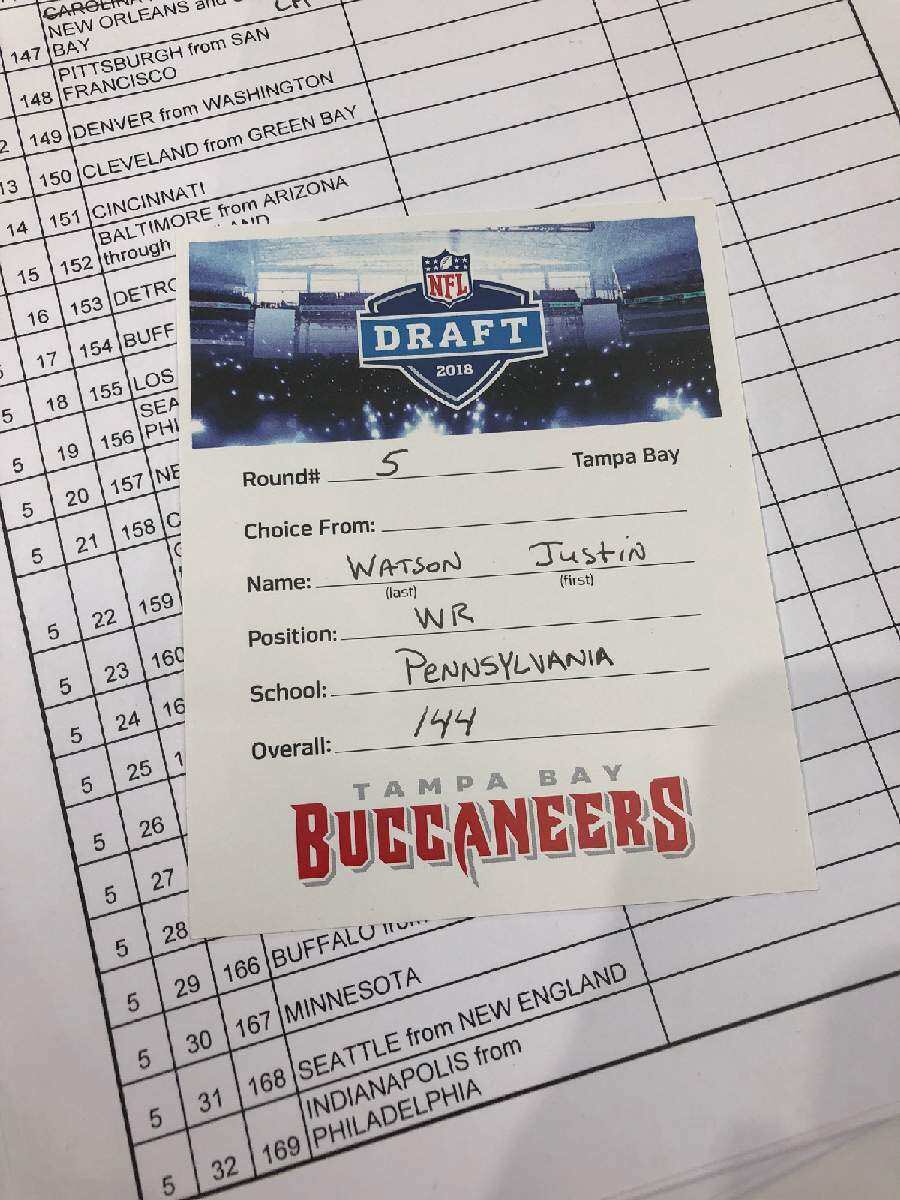 CAROLINA
NEW ORLEANS and
147 BAY
148 PITTSBURGH from SAN
FRANCISCO
149 DENVER from WASHINGTON
13 150 CLEVELAND from GREEN BAY
14 151 CINCINNATI
15 152 BALTIMORE from ARIZONA
through
16 153 DETRO
17 154 BUFF
5 18 155 LOS
5 19 156 SEA
PHI
5 20 157 NE
5 21 158
5 22 159
5 23 160
5 24 16
5 25 1
5 26
5 27
5 28
5 29 166 BUFFALO
5 30 167 MINNESOTA
5 31 168 SEATTLE from NEW ENGLAND
5 32 169 INDIANAPOLIS from
PHILADELPHIA
NFL
DRAFT
2018
Round# 5 Tampa Bay
Choice From:
Name: WATSON Justin
(last) (first)
Position: WR
School: PENNSYLVANIA
Overall: 144
TAMPA BAY
BUCCANEERS